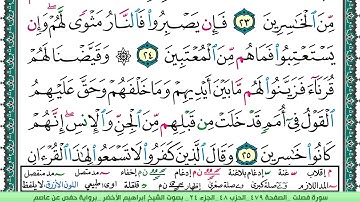 مِّنَ ٱلْخَـٰسِرِينَ ٢٣ فَإِن يَصْبِرُوا۟ فَٱلنَّارُ مَثْوًى لَّهُمْ ۖ وَإِن
يَسْتَعْتِبُوا۟ فَمَا هُم مِّنَ ٱلْمُعْتَبِينَ ٢٤ ۞ وَقَيَّضْنَا لَهُمْ
قُرَنَآءَ فَزَيَّنُوا۟ لَهُم مَّا بَيْنَ أَيْدِيهِمْ وَمَا خَلْفَهُمْ وَحَقَّ عَلَيْهِمُ
ٱلْقَوْلُ فِىٓ أُمَمٍ قَدْ خَلَتْ مِن قَبْلِهِم مِّنَ ٱلْجِنِّ وَٱلْإِنسِ ۖ إِنَّهُمْ
كَانُوا۟ خَـٰسِرِينَ ٢٥ وَقَالَ ٱلَّذِينَ كَفَرُوا۟ لَا تَسْمَعُوا۟ لِهَـٰذَا ٱلْقُرْءَانِ
سورة فصلت الصفحة ٤٧٩ الحزب ٤٨ الجزء ٢٤ بصوت الشيخ إبراهيم الأخضر برواية حفص عن عاصم